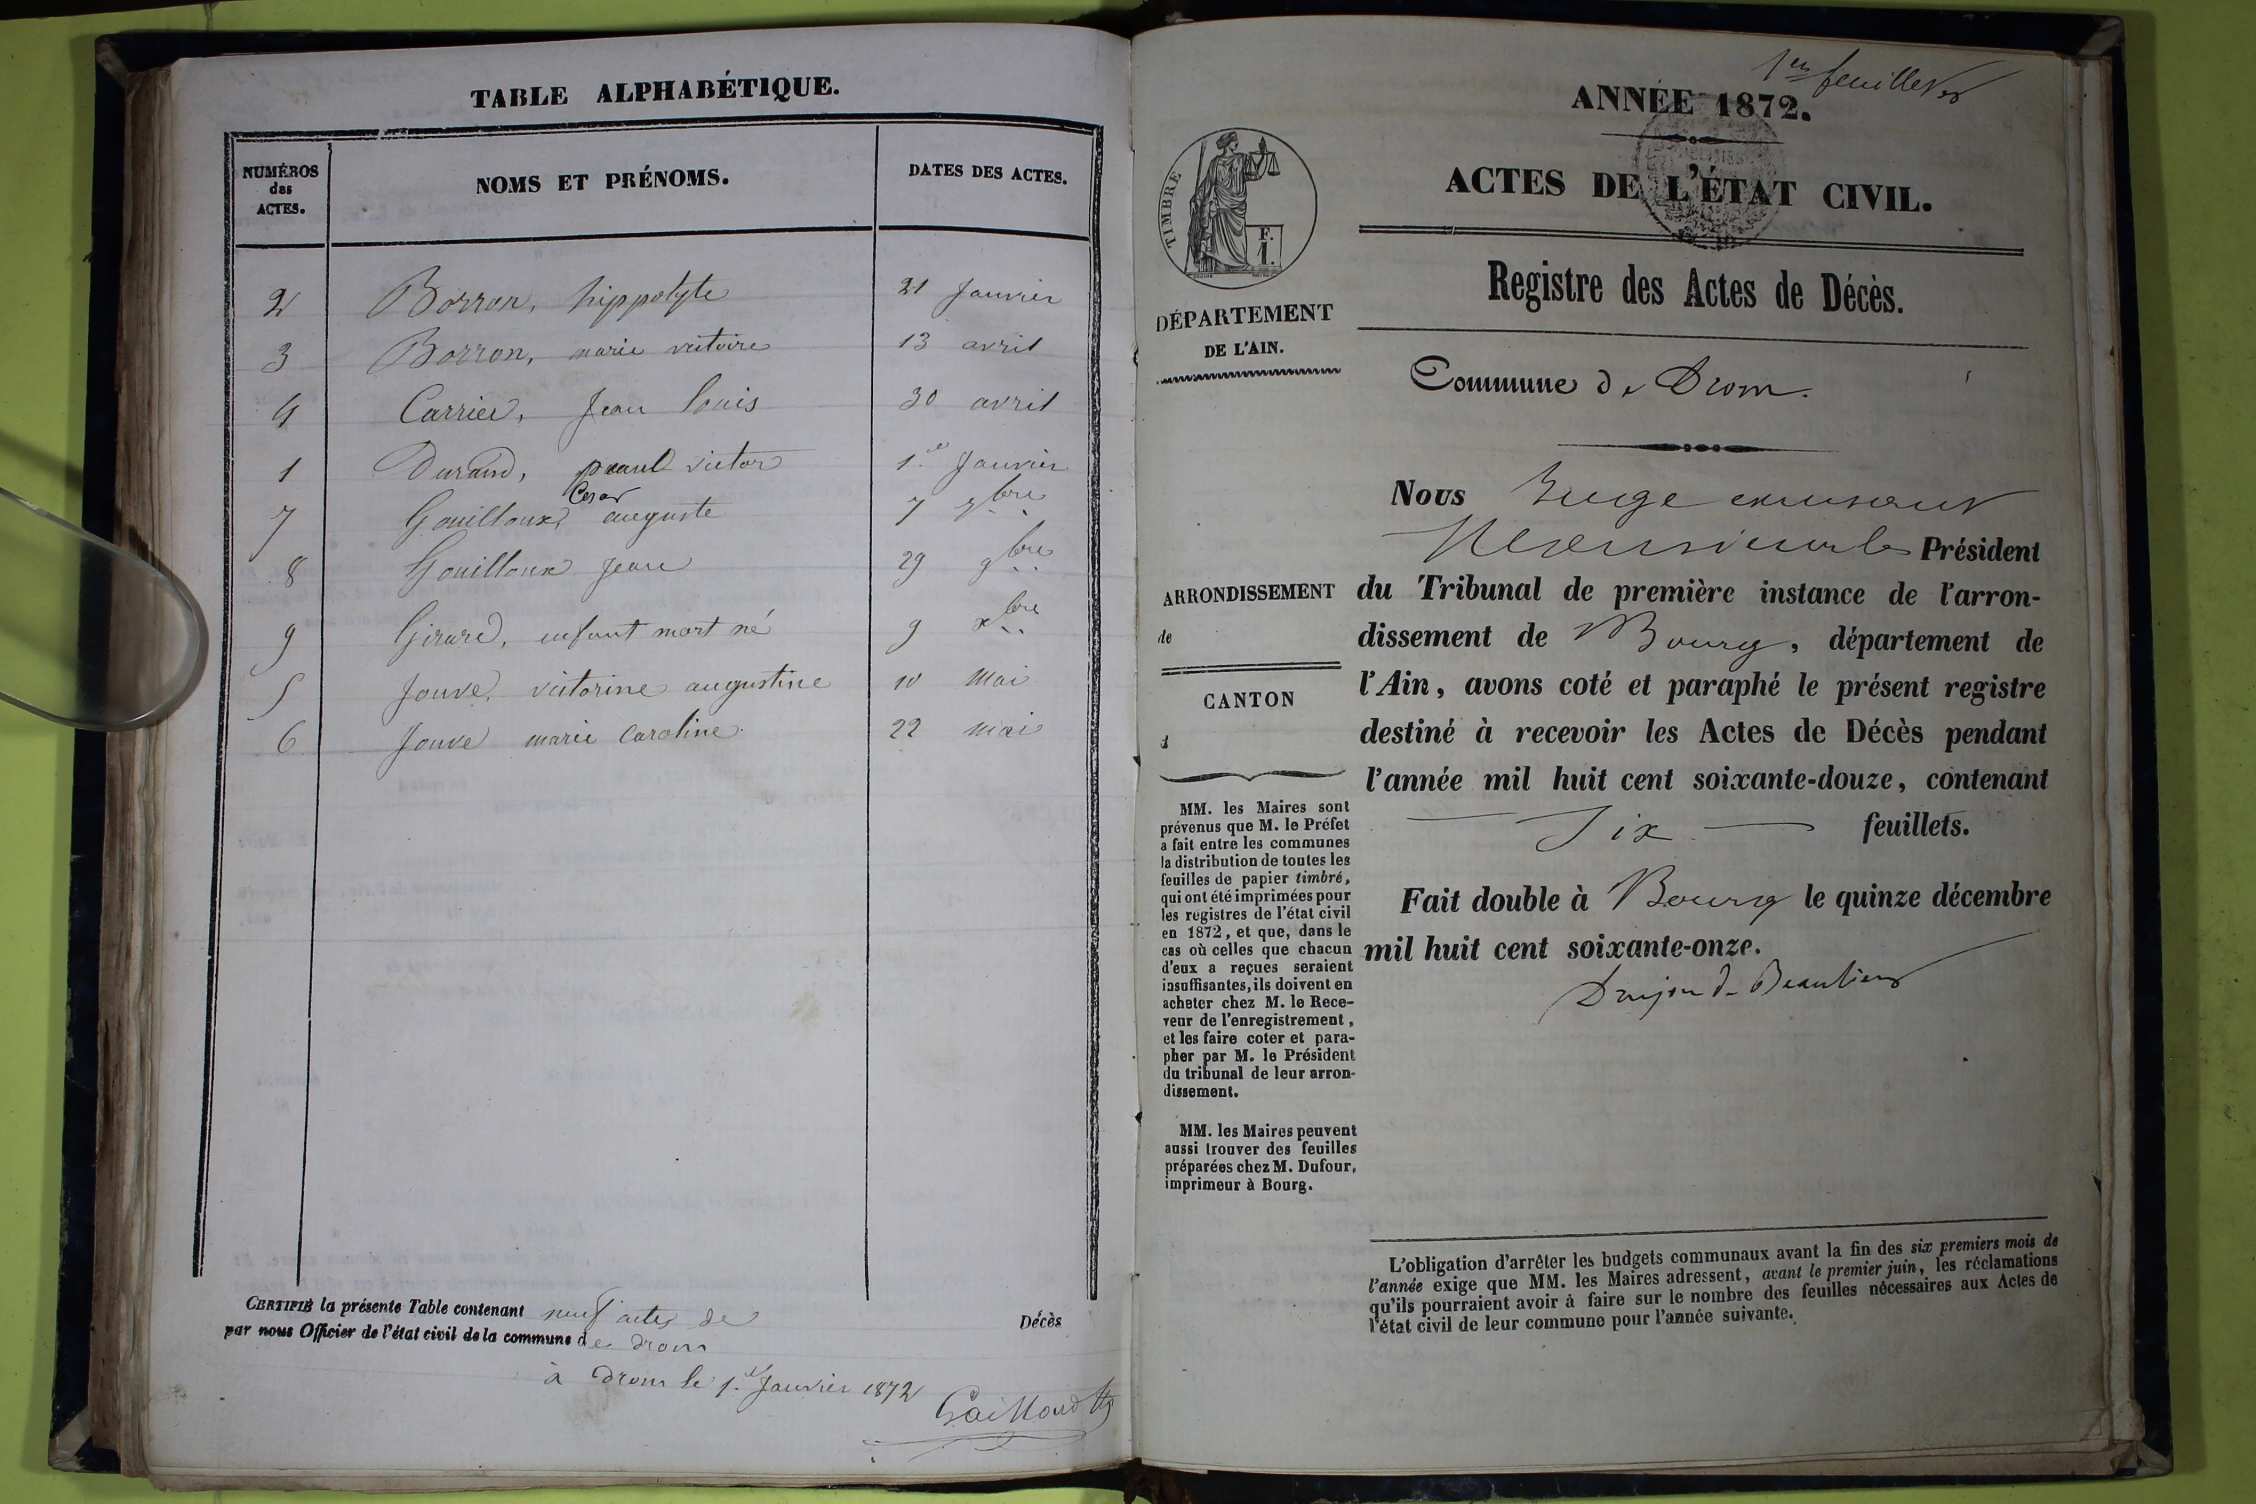 TABLE ALPHABÉTIQUE.
NUMÉROS des ACTES. NOMS ET PRÉNOMS. DATES DES ACTES.
2 Borron, hippolyte 21 Janvier
3 Borron, marie victoire 13 avril
4 Carrier, Jean Louis 30 avril
1 Durand, paul victor 1er Janvier
Cesar
7 Gouilloux, auguste 7 9bre
8 Gouilloux Jean 29 9bre
9 Girard, enfant mort né 9 xbre
5 Jouve, victorine augustine 10 Mai
6 Jouve marie Caroline 22 Mai
CERTIFIÉ la présente Table contenant neuf actes de Décès
par nous Officier de l'état civil de la commune de drom
à Drom le 1er Janvier 1872
1er feuillet
ANNÉE 1872.
ACTES DE L'ÉTAT CIVIL.
Registre des Actes de Décès.
TIMBRE
F.
1.
DÉPARTEMENT
DE L'AIN.
Commune de Drom.
Nous Juge
Président
du Tribunal de première instance de l'arron-
dissement de Bourg, département de
l'Ain, avons coté et paraphé le présent registre
destiné à recevoir les Actes de Décès pendant
l'année mil huit cent soixante-douze, contenant
Six feuillets.
Fait double à Bourg le quinze décembre
mil huit cent soixante-onze.
Drujon de Beaulieu
ARRONDISSEMENT
de
CANTON
d
MM. les Maires sont
prévenus que M. le Préfet
a fait entre les communes
la distribution de toutes les
feuilles de papier timbré,
qui ont été imprimées pour
les registres de l'état civil
en 1872, et que, dans le
cas où celles que chacun
d'eux a reçues seraient
insuffisantes, ils doivent en
acheter chez M. le Rece-
veur de l'enregistrement,
et les faire coter et para-
pher par M. le Président
du tribunal de leur arron-
dissement.
MM. les Maires peuvent
aussi trouver des feuilles
préparées chez M. Dufour,
imprimeur à Bourg.
L'obligation d'arrêter les budgets communaux avant la fin des six premiers mois de
l'année exige que MM. les Maires adressent, avant le premier juin, les réclamations
qu'ils pourraient avoir à faire sur le nombre des feuilles nécessaires aux Actes de
l'état civil de leur commune pour l'année suivante.